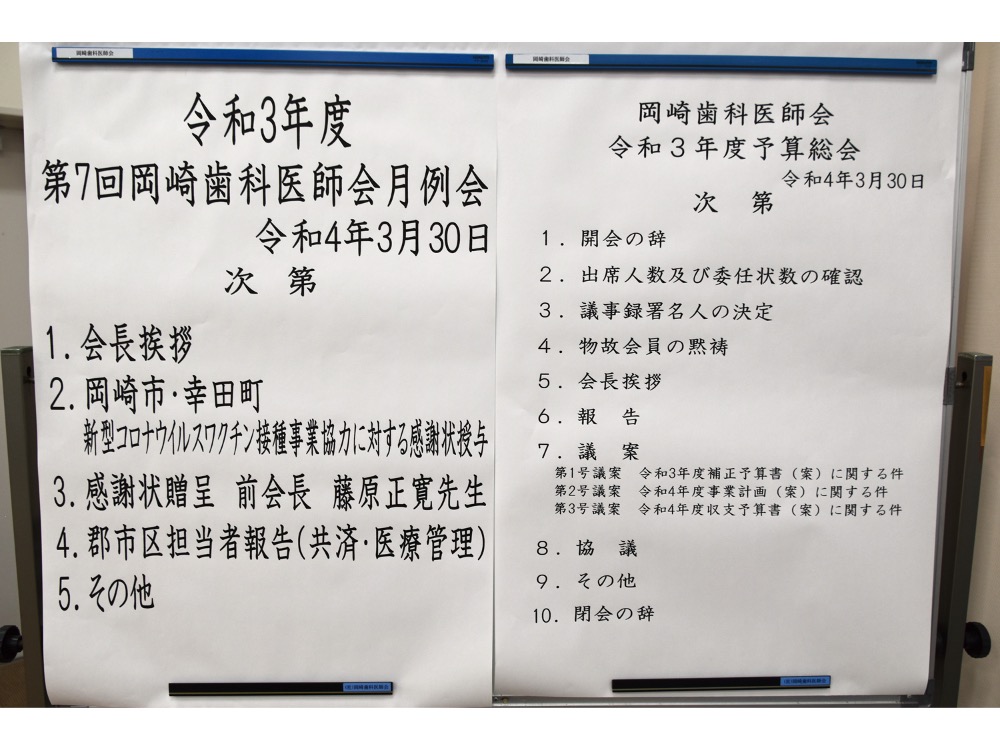 岡崎歯科医師会
令和3年度
第7回岡崎歯科医師会月例会
令和4年3月30日
次 第
1. 会長挨拶
2. 岡崎市・幸田町
新型コロナウイルスワクチン接種事業協力に対する感謝状授与
3. 感謝状贈呈 前会長 藤原正寛先生
4. 郡市区担当者報告(共済・医療管理)
5. その他
(社)岡崎歯科医師会
岡崎歯科医師会
岡崎歯科医師会
令和3年度予算総会
令和4年3月30日
次 第
1. 開会の辞
2. 出席人数及び委任状数の確認
3. 議事録署名人の決定
4. 物故会員の黙祷
5. 会長挨拶
6. 報 告
7. 議 案
第1号議案 令和3年度補正予算書(案)に関する件
第2号議案 令和4年度事業計画(案)に関する件
第3号議案 令和4年度収支予算書(案)に関する件
8. 協 議
9. その他
10. 閉会の辞
(社)岡崎歯科医師会